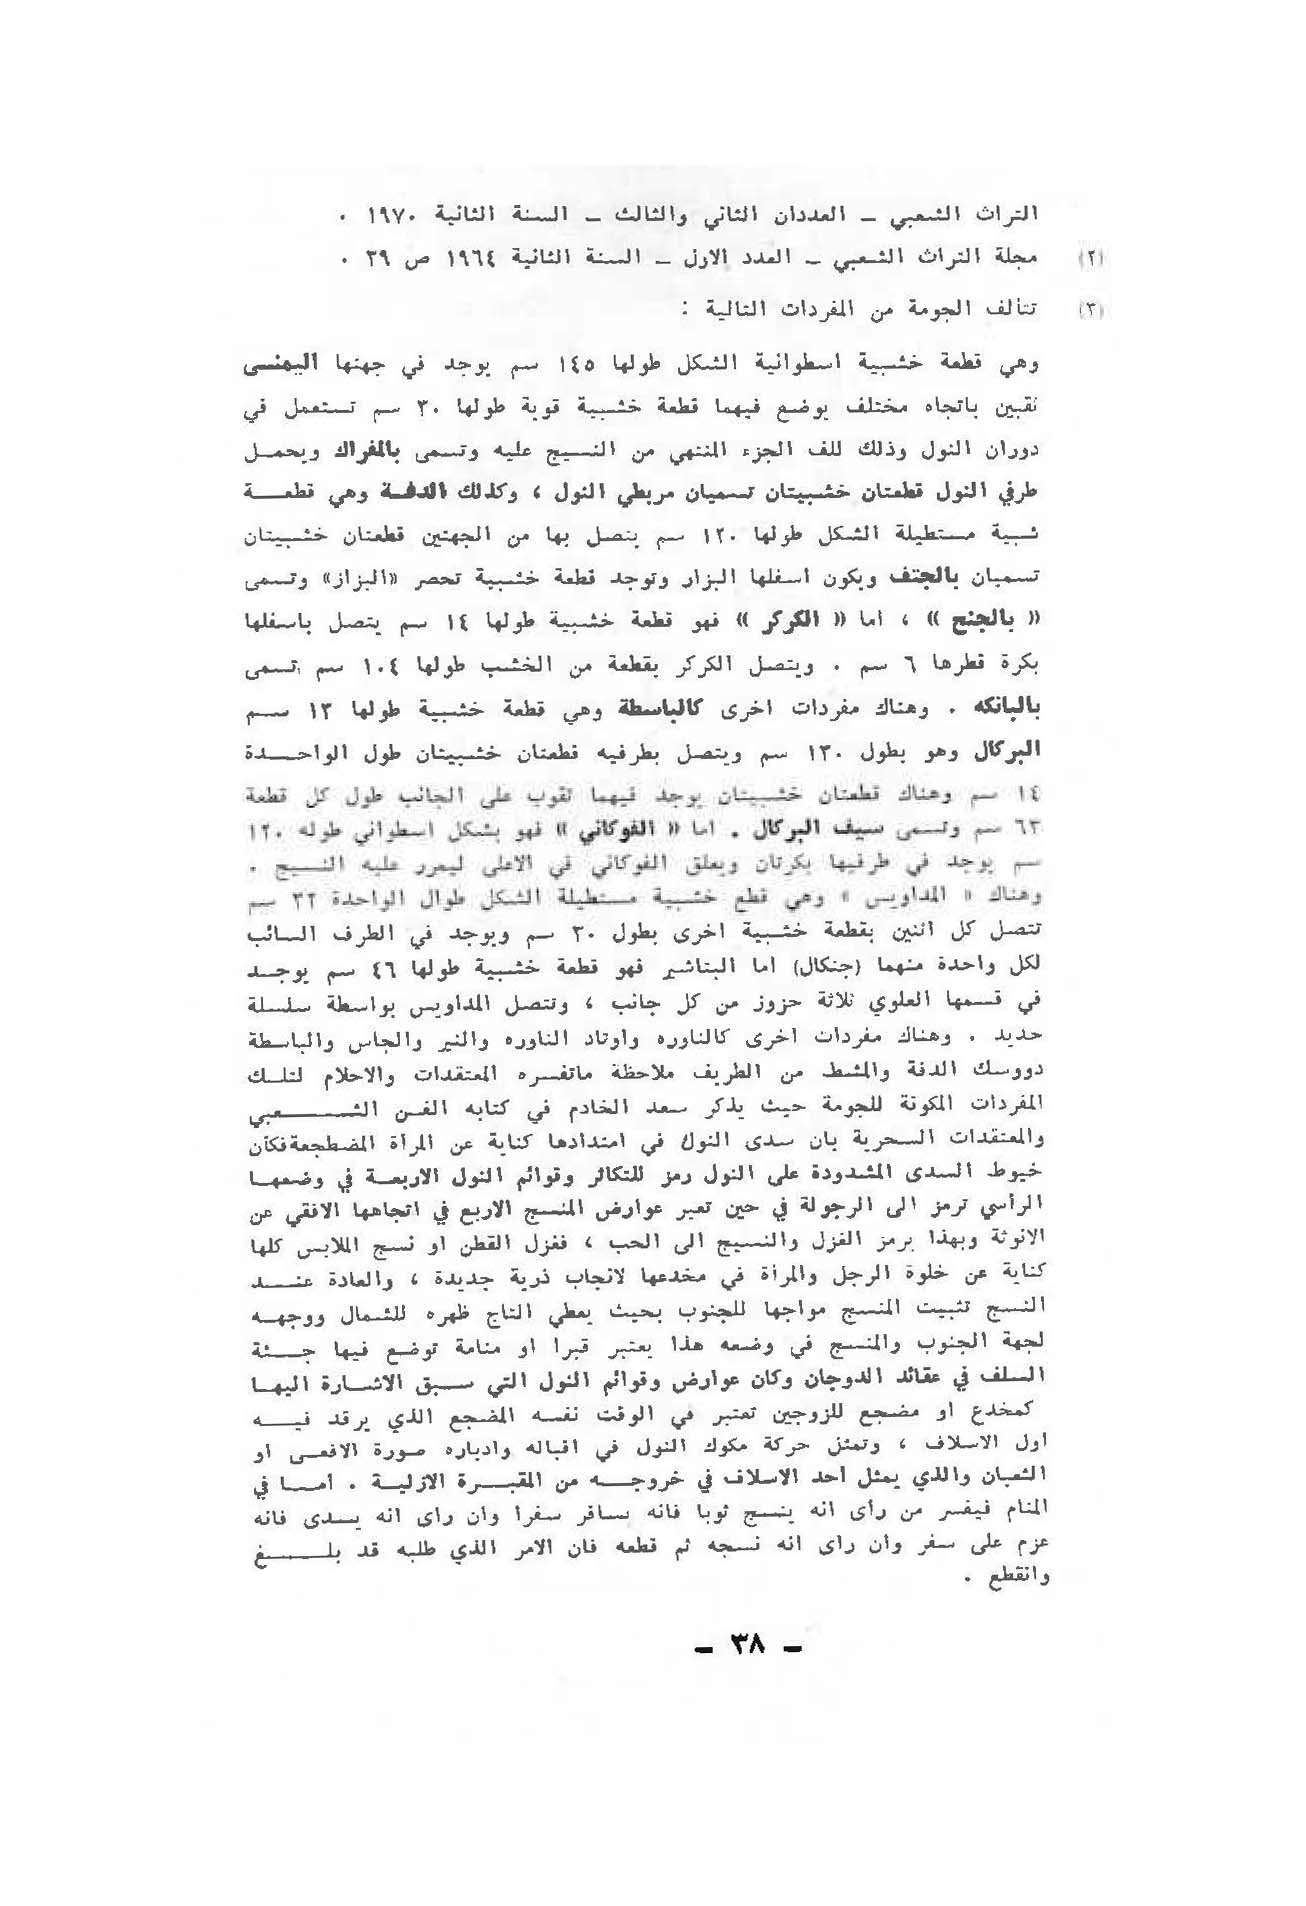 التراث الشعبي ــ العددان الثاني والثالث ــ السنة الثانية ١٩٧٠ .
(٢) مجلة التراث الشعبي ــ العدد الاول ــ السنة الثانية ١٩٦٤ ص ٣٩ .
(٣) تتألف الجومة من المفردات التالية :
وهي قطعة خشبية اسطوانية الشكل طولها ١٤٥ سم يوجد في جهتها اليمنــى
نقبين باتجاه مختلف يوضع فيهما قطعة خشبية قوية طولها ٣٠ سم تستعمل في
دوران النول وذلك للف الجزء المنتهي من النسيج عليه وتسمى بالمفراك ويحمــل
طرفي النول قطعتان خشبيتان تسميان مربطي النول ، وكذلك الدفــة وهي قطعــــة
شبية مستطيلة الشكل طولها ١٢٠ سم يتصل بها من الجهتين قطعتان خشبيتان
تسميان بالجتف ويكون اسفلها البزار وتوجد قطعة خشبية تحصر «البزاز» وتسمى
« بالجنح » ، اما « الكركر » فهو قطعة خشبية طولها ١٤ سم يتصل باسفلها
بكرة قطرها ٦ سم . ويتصل الكركر بقطعة من الخشب طولها ١٠٤ سم تسمى
بالبانكه . وهناك مفردات اخرى كالباسطة وهي قطعة خشبية طولها ١٣ ســم
البركال وهو بطول ١٣٠ سم ويتصل بطرفيه قطعتان خشبيتان طول الواحــدة
١٤ سم وهناك قطعتان خشبيتان يوجد فيهما ثقوب على الجانب طول كل قطعة
٦٣ سم وتسمى سيف البركال . اما « الفوكاني » فهو بشكل اسطواني طوله ١٢٠
سم يوجد في طرفيها بكرتان ويعلق الفوكاني في الاعلى ليمرر عليه النسيج .
وهناك « المداويس » وهي قطع خشبية مستطيلة الشكل طوال الواحدة ٣٢ سم
تتصل كل اثنين بقطعة خشبية اخرى بطول ٣٠ سم ويوجد في الطرف السائب
لكل واحدة منهما (جنكال) اما البتاشير فهو قطعة خشبية طولها ٤٦ سم يوجــد
في قسمها العلوي ثلاثة حزوز من كل جانب ، وتتصل المداويس بواسطة سلسلة
حديد . وهناك مفردات اخرى كالناوره واوتاد الناوره والنير والجاس والباسطة
دووسك الدفة والمشط من الطريف ملاحظة ماتفسره المعتقدات والاحلام لتلــك
المفردات المكونة للجومة حيث يذكر سعد الخادم في كتابه الفــن الشـــــــعبي
والمعتقدات السحرية بان سدى النول في امتدادها كناية عن المرأة المضطجعةفكأن
خيوط السدى المشدودة على النول رمز للتكاثر وقوائم النول الاربعــة في وضعهــا
الرأسي ترمز الى الرجولة في حين تعبر عوارض المنسج الاربع في اتجاهها الافقي عن
الانوثة وبهذا يرمز الغزل والنسيج الى الحب ، فغزل القطن او نسج الملابس كلها
كناية عن خلوة الرجل والمرأة في مخدعها لانجاب ذرية جديدة ، والعادة عنــد
النسج تثبيت المنسج مواجها للجنوب بحيث يعطي التاج ظهره للشمال ووجهــه
لجهة الجنوب والمنسج في وضعه هذا يعتبر قبرا او منامة توضع فيها جــثة
السلف في عقائد الدوجان وكان عوارض وقوائم النول التي ســبق الاشــارة اليهــا
كمخدع او مضجع للزوجين تعتبر في الوقت نفسه المضجع الذي يرقد فيــه
اول الاسلاف ، وتمثل حركة مكوك النول في اقباله وادباره صورة الافعــى او
الثعبان والذي يمثل احد الاسلاف في خروجــــه من المقبــرة الازليــة . امــا في
المنام فيفسر من رأى انه ينسج ثوبا فانه يسافر سفرا وان راى انه يسدى فانه
عزم على سفر وان راى انه نسجه ثم قطعه فان الامر الذي طلبه قد بلــــــغ
وانقطع .
ــ ٣٨ ــ